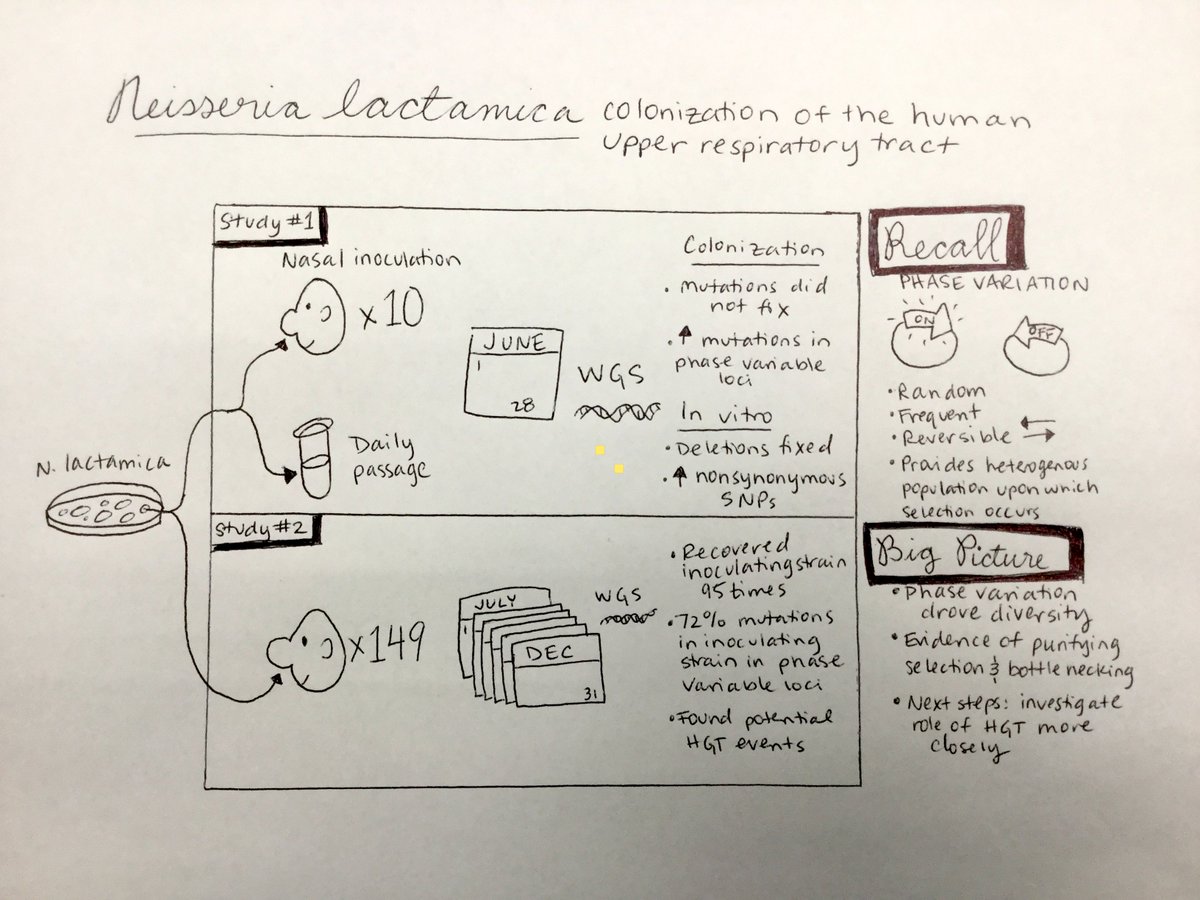 Neisseria lactamica colonization of the human
upper respiratory tract
Study #1
Nasal inoculation
x10
N. lactamica
Daily
passage
JUNE
1
28
WGS
Colonization
• mutations did
not fix
• ↑ mutations in
phase variable
loci
In vitro
• Deletions fixed
• ↑ nonsynonymous
SNPs
Study #2
x149
JULY
1
DEC
31
WGS
• Recovered
inoculating strain
95 times
• 72% mutations
in inoculating
strain in phase
variable loci
• Found potential
HGT events
Recall
PHASE VARIATION
ON
OFF
• Random
• Frequent
• Reversible
• Provides heterogenous
population upon which
selection occurs
Big Picture
• Phase variation
drove diversity
• Evidence of purifying
selection & bottle necking
• Next steps: investigate
role of HGT more
closely